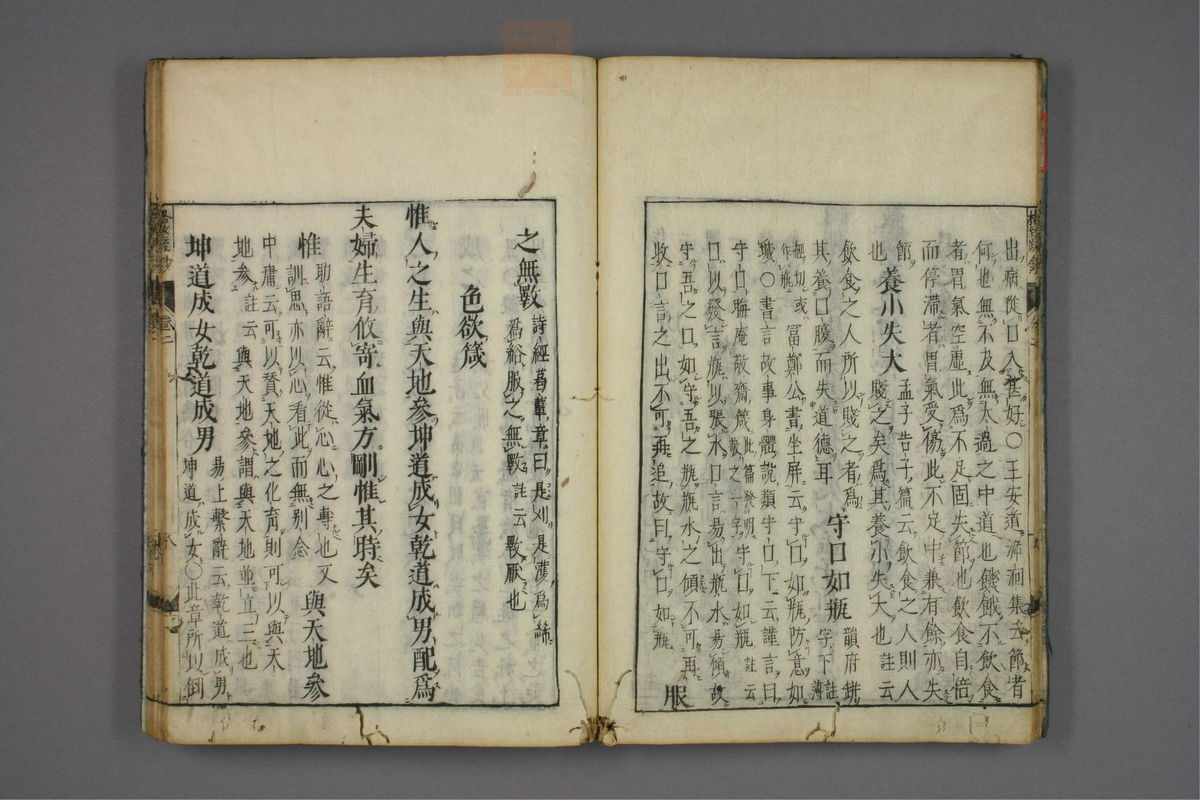 出病從口入甚好○王安道泝洄集云節者
何也無不及無太過之中道也饑餓不飲食
者胃氣空虛此爲不足固失節也飲食自倍
而停滯者胃氣受傷此不足中兼有餘亦失
節
養小失大
孟子告子篇云飲食之人則人
賤之矣爲其養小失大也註云
飲食之人所以賤之者爲
其養口腹而失道德耳
守口如瓶
韻府缾
字下註
冨鄭公書坐屏云守口如瓶防意如
城○書言故事身體說類守口下云謹言曰
守口晦庵敬齋箴
守口如瓶
註云
口以發言瓶以張水口言易出瓶水易傾故
守吾之口如守吾之瓶瓶水之傾不可再
收口言之出不可再追故曰守口如瓶
服
之無斁
詩經葛覃章曰是刈是濩爲絺
爲綌服之無斁註云斁厭也
色欲箴
惟人之生與天地參坤道成女乾道成男配爲
夫婦生育攸寄血氣方剛惟其時矣
惟
助語辭云惟從心心之專也又
訓思亦以心看此而無別念
與天地參
中庸云可以贊天地之化育則可以與天
地參註云與天地參謂與天地並立三也
坤道成女乾道成男
易上繫辭云乾道成男
坤道成女○此章所以倒